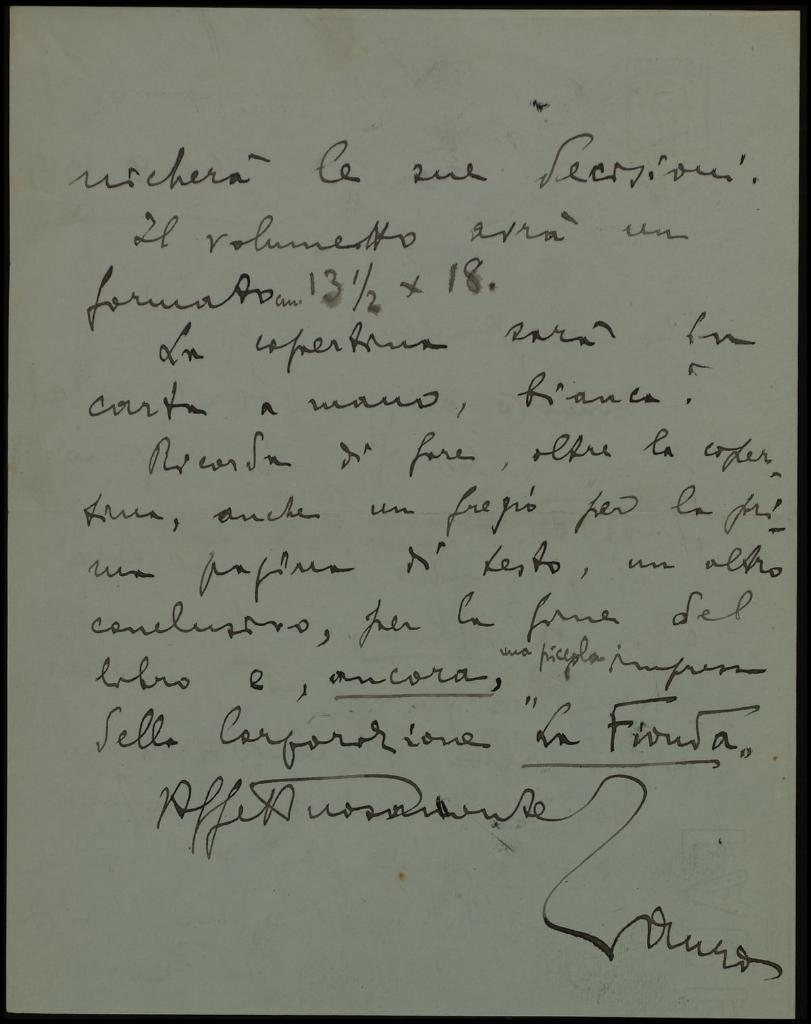 nicherà le sue decisioni.
Il volumetto avrà un
formato cm. 13 1/2 x 18.
La copertina sarà in
carta a mano, bianca.
Ricorda di fare, oltre la coper-
tina, anche un fregio per la pri-
ma pagina di testo, un altro
conclusivo, per la fine del
libro e, ancora, una piccola impresa
della Corporazione "La Fionda„
Affettuosamente